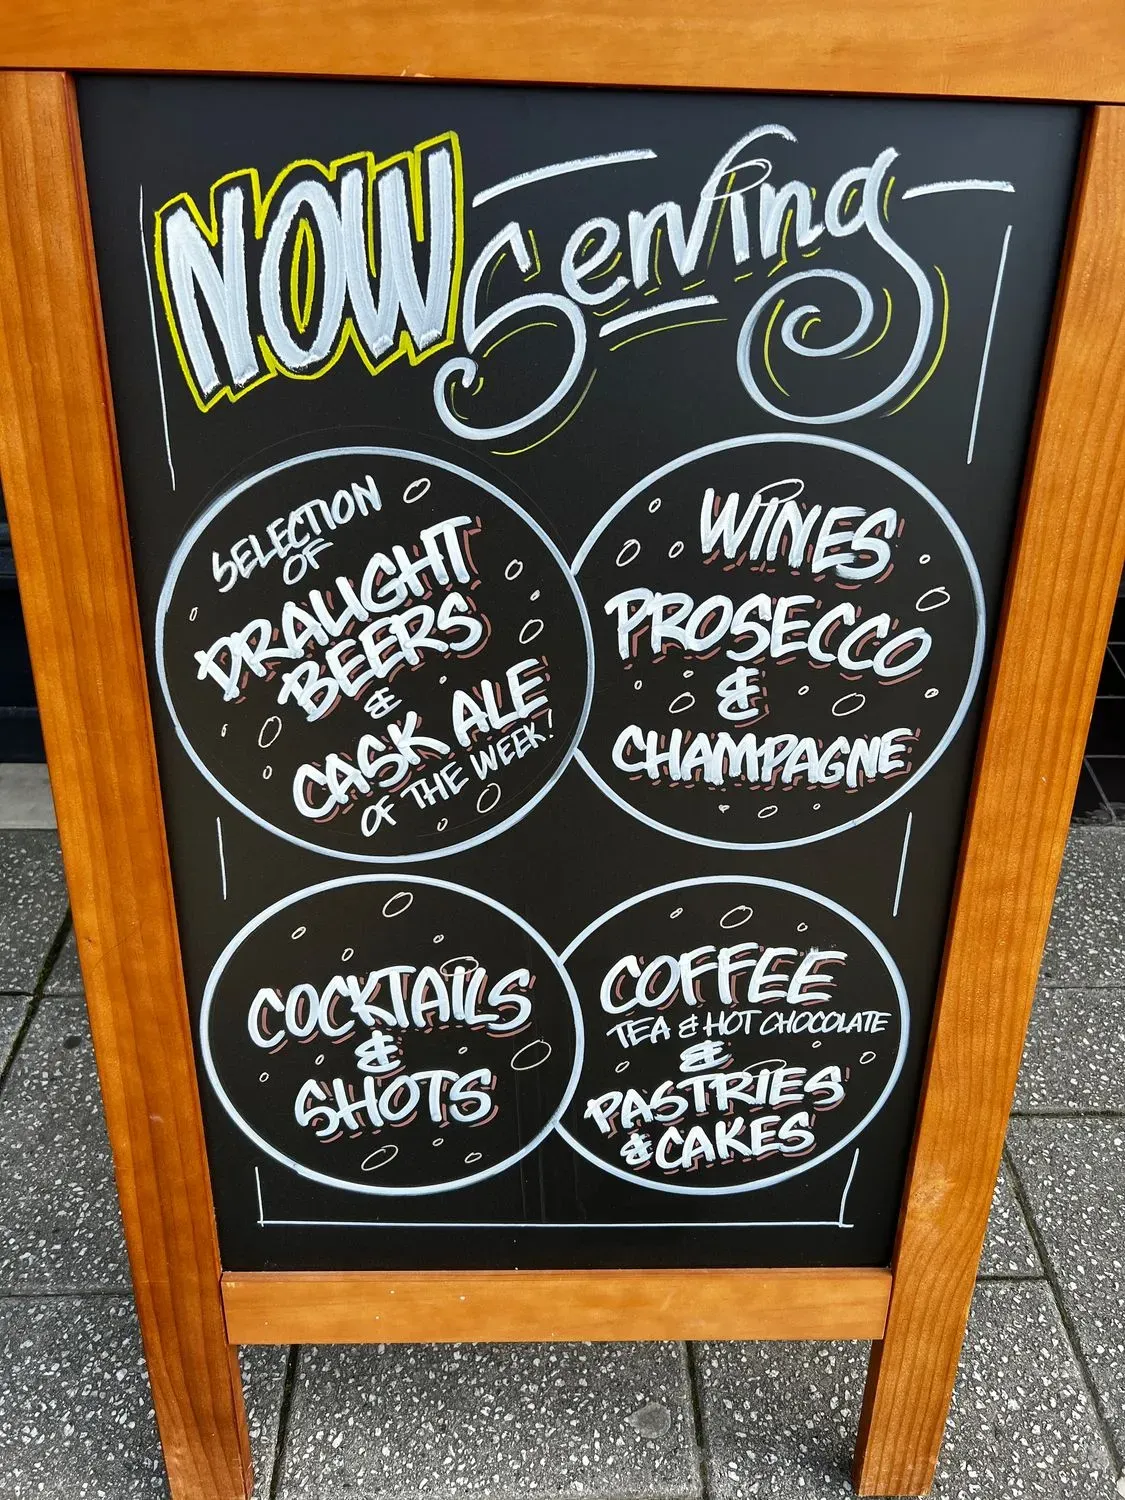 NOW Serving
SELECTION
OF
DRAUGHT
BEERS
&
CASK ALE
OF THE WEEK!
WINES
PROSECCO
&
CHAMPAGNE
COCKTAILS
&
SHOTS
COFFEE
TEA & HOT CHOCOLATE
&
PASTRIES
& CAKES